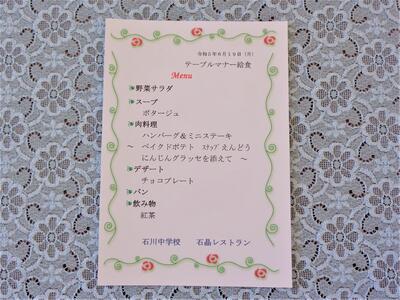 令和5年6月19日（月）
テーブルマナー給食
Menu
野菜サラダ
スープ
ポタージュ
肉料理
ハンバーグ＆ミニステーキ
～ ベイクドポテト ｽﾅｯﾌﾟえんどう
にんじんグラッセを添えて ～
デザート
チョコプレート
パン
飲み物
紅茶
石川中学校 石晶レストラン